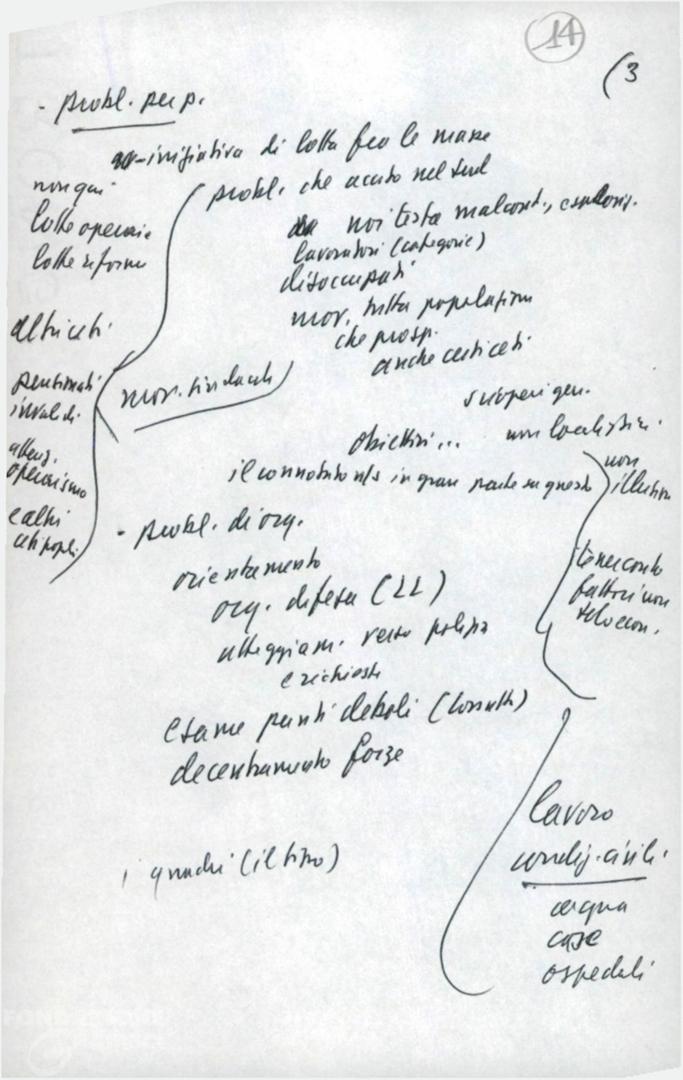 14
(3
- probl. per p.
- iniziativa di lotta fra le masse
probl. che acuto nel Sud
non qui
lotte operaie
lotte riforme
noi testa malcont., esplosiz.
lavoratori (categorie)
disoccupati
mov. tutta popolazione
che prosp.
anche certi ceti
altri ceti
mov. sindacale
pensionati
invalidi
scioperi gen.
obiettivi... non localistici
atteg.
operaismo
e altri
ceti popol.
il connotato n/s in gran parte su questo
non
illusioni
- probl. di org.
orientamento
org. difesa (LL)
atteggiam. verso polizia
e richieste
tener conto
fattori non
solo econ.
esame punti deboli
decentramento forze
lavoro
condiz. civili
acqua
case
ospedali
i quadri (il tipo)